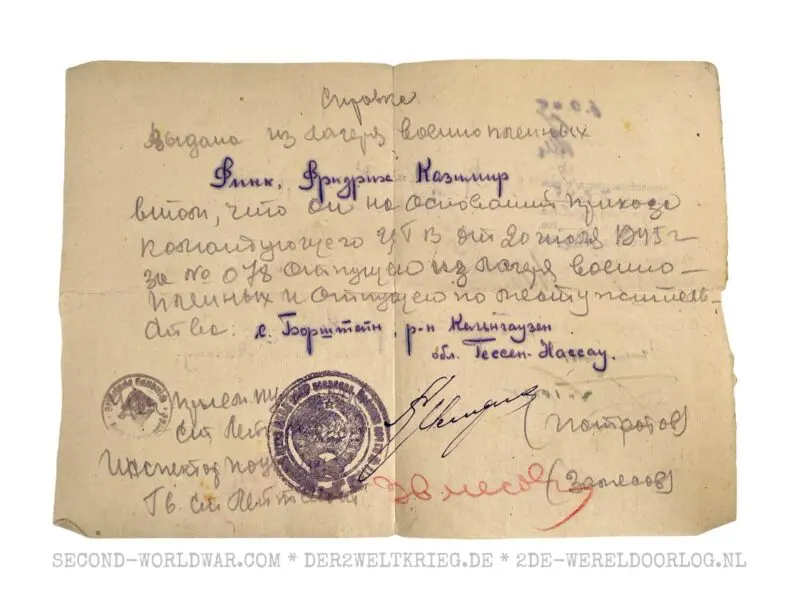 Справка
Выдана из лагеря военнопленных
Финк, Фридрих Казимир
втом, что он на основании приказа
командующего ЦГВ от 20 июля 1945 г
за № 078 отпущен из лагеря военно-
пленных и отпущен по месту житель-
ства: с. Борштейн, р-н Кельнгаузен
обл. Гессен-Нассау.
ст Лейт
(Потропов)
Инспектор
Гв. ст Лейтенант
SECOND-WORLDWAR.COM * DER2WELTKRIEG.DE * 2DE-WERELDOORLOG.NL